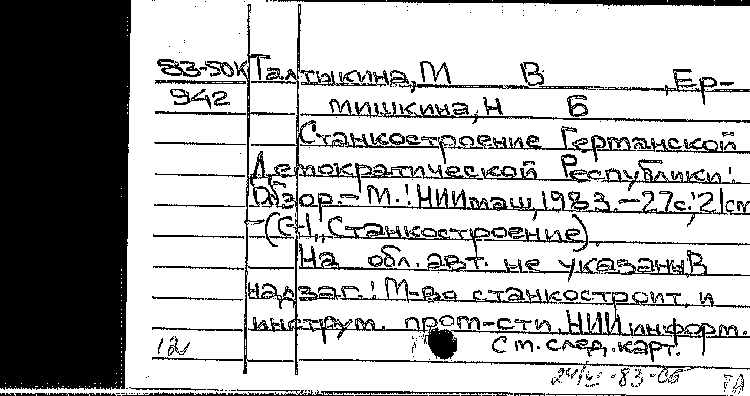 83-50К Талтыкина, М В , Ер-
942 мишкина, Н Б
Станкостроение Германской
Демократической Республики:
Обзор.- М.: НИИмаш, 1983.-27с.; 21см
-(С-1, Станкостроение).
На обл. авт. не указаны В
надзаг.: М-во станкостроит. и
инструм. пром-сти. НИИ информ.
См. след. карт.
12
-83-